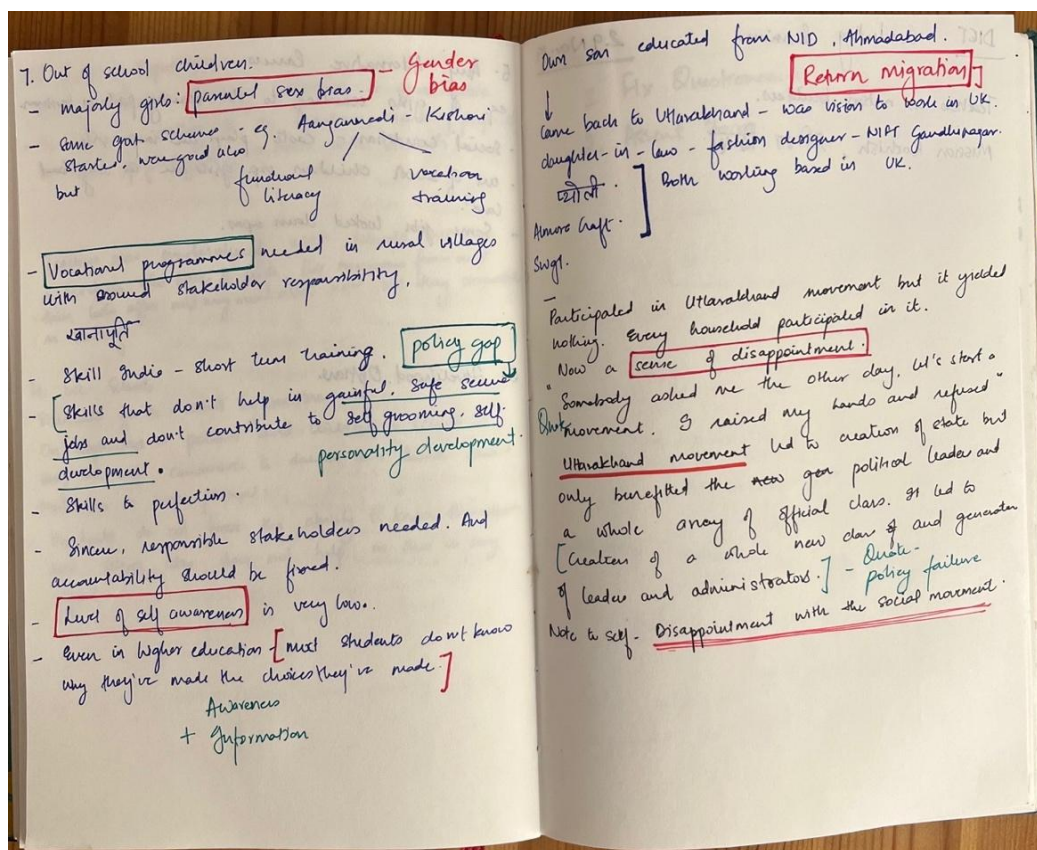 7. Out of school children.
- majorly girls: parental sex bias. - Gender bias
- Some govt schemes - eg. Aanganwadi - Kishori
started, were good also
but
functional literacy
vocation training
- Vocational programmes needed in rural villages
with around stakeholder responsibility.
खानापूर्ति
- Skill India - short term training.
policy gap
- [Skills that don't help in gainful, safe secure
jobs and don't contribute to self grooming, self
development.
personality development.
- Skills to perfection.
- Sincere, responsible stakeholders needed. And
accountability should be fixed.
- Level of self awareness is very low.
- Even in higher education - [most students don't know
why they've made the choices they've made.]
Awareness
+ Information
Own son educated from NID, Ahmadabad.
Return migration]
Came back to Uttarakhand - was vision to work in UK.
daughter-in-law - fashion designer - NIFT Gandhinagar.
] Both working based in UK.
Almora Craft.
Swgl.
-
Participated in Uttarakhand movement but it yielded
nothing. Every household participated in it.
"Now a sense of disappointment.
Somebody asked me the other day, let's start a
Quote movement. I raised my hands and refused"
Uttarakhand movement led to creation of state but
only benefitted the political leader and
a whole array of official class. It led to
[Creation of a whole new class and generation
of leaders and administrators.] - Quote-
policy failure
Note to self - Disappointment with the social movement.